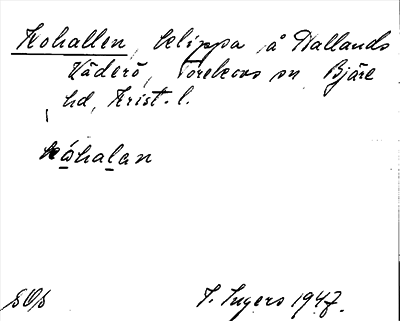 Kohallen, klippa å Hallands
Väderö, Torekovs sn, Bjäre
hd, Krist. l.
kóhalan
I. Ingers 1947.